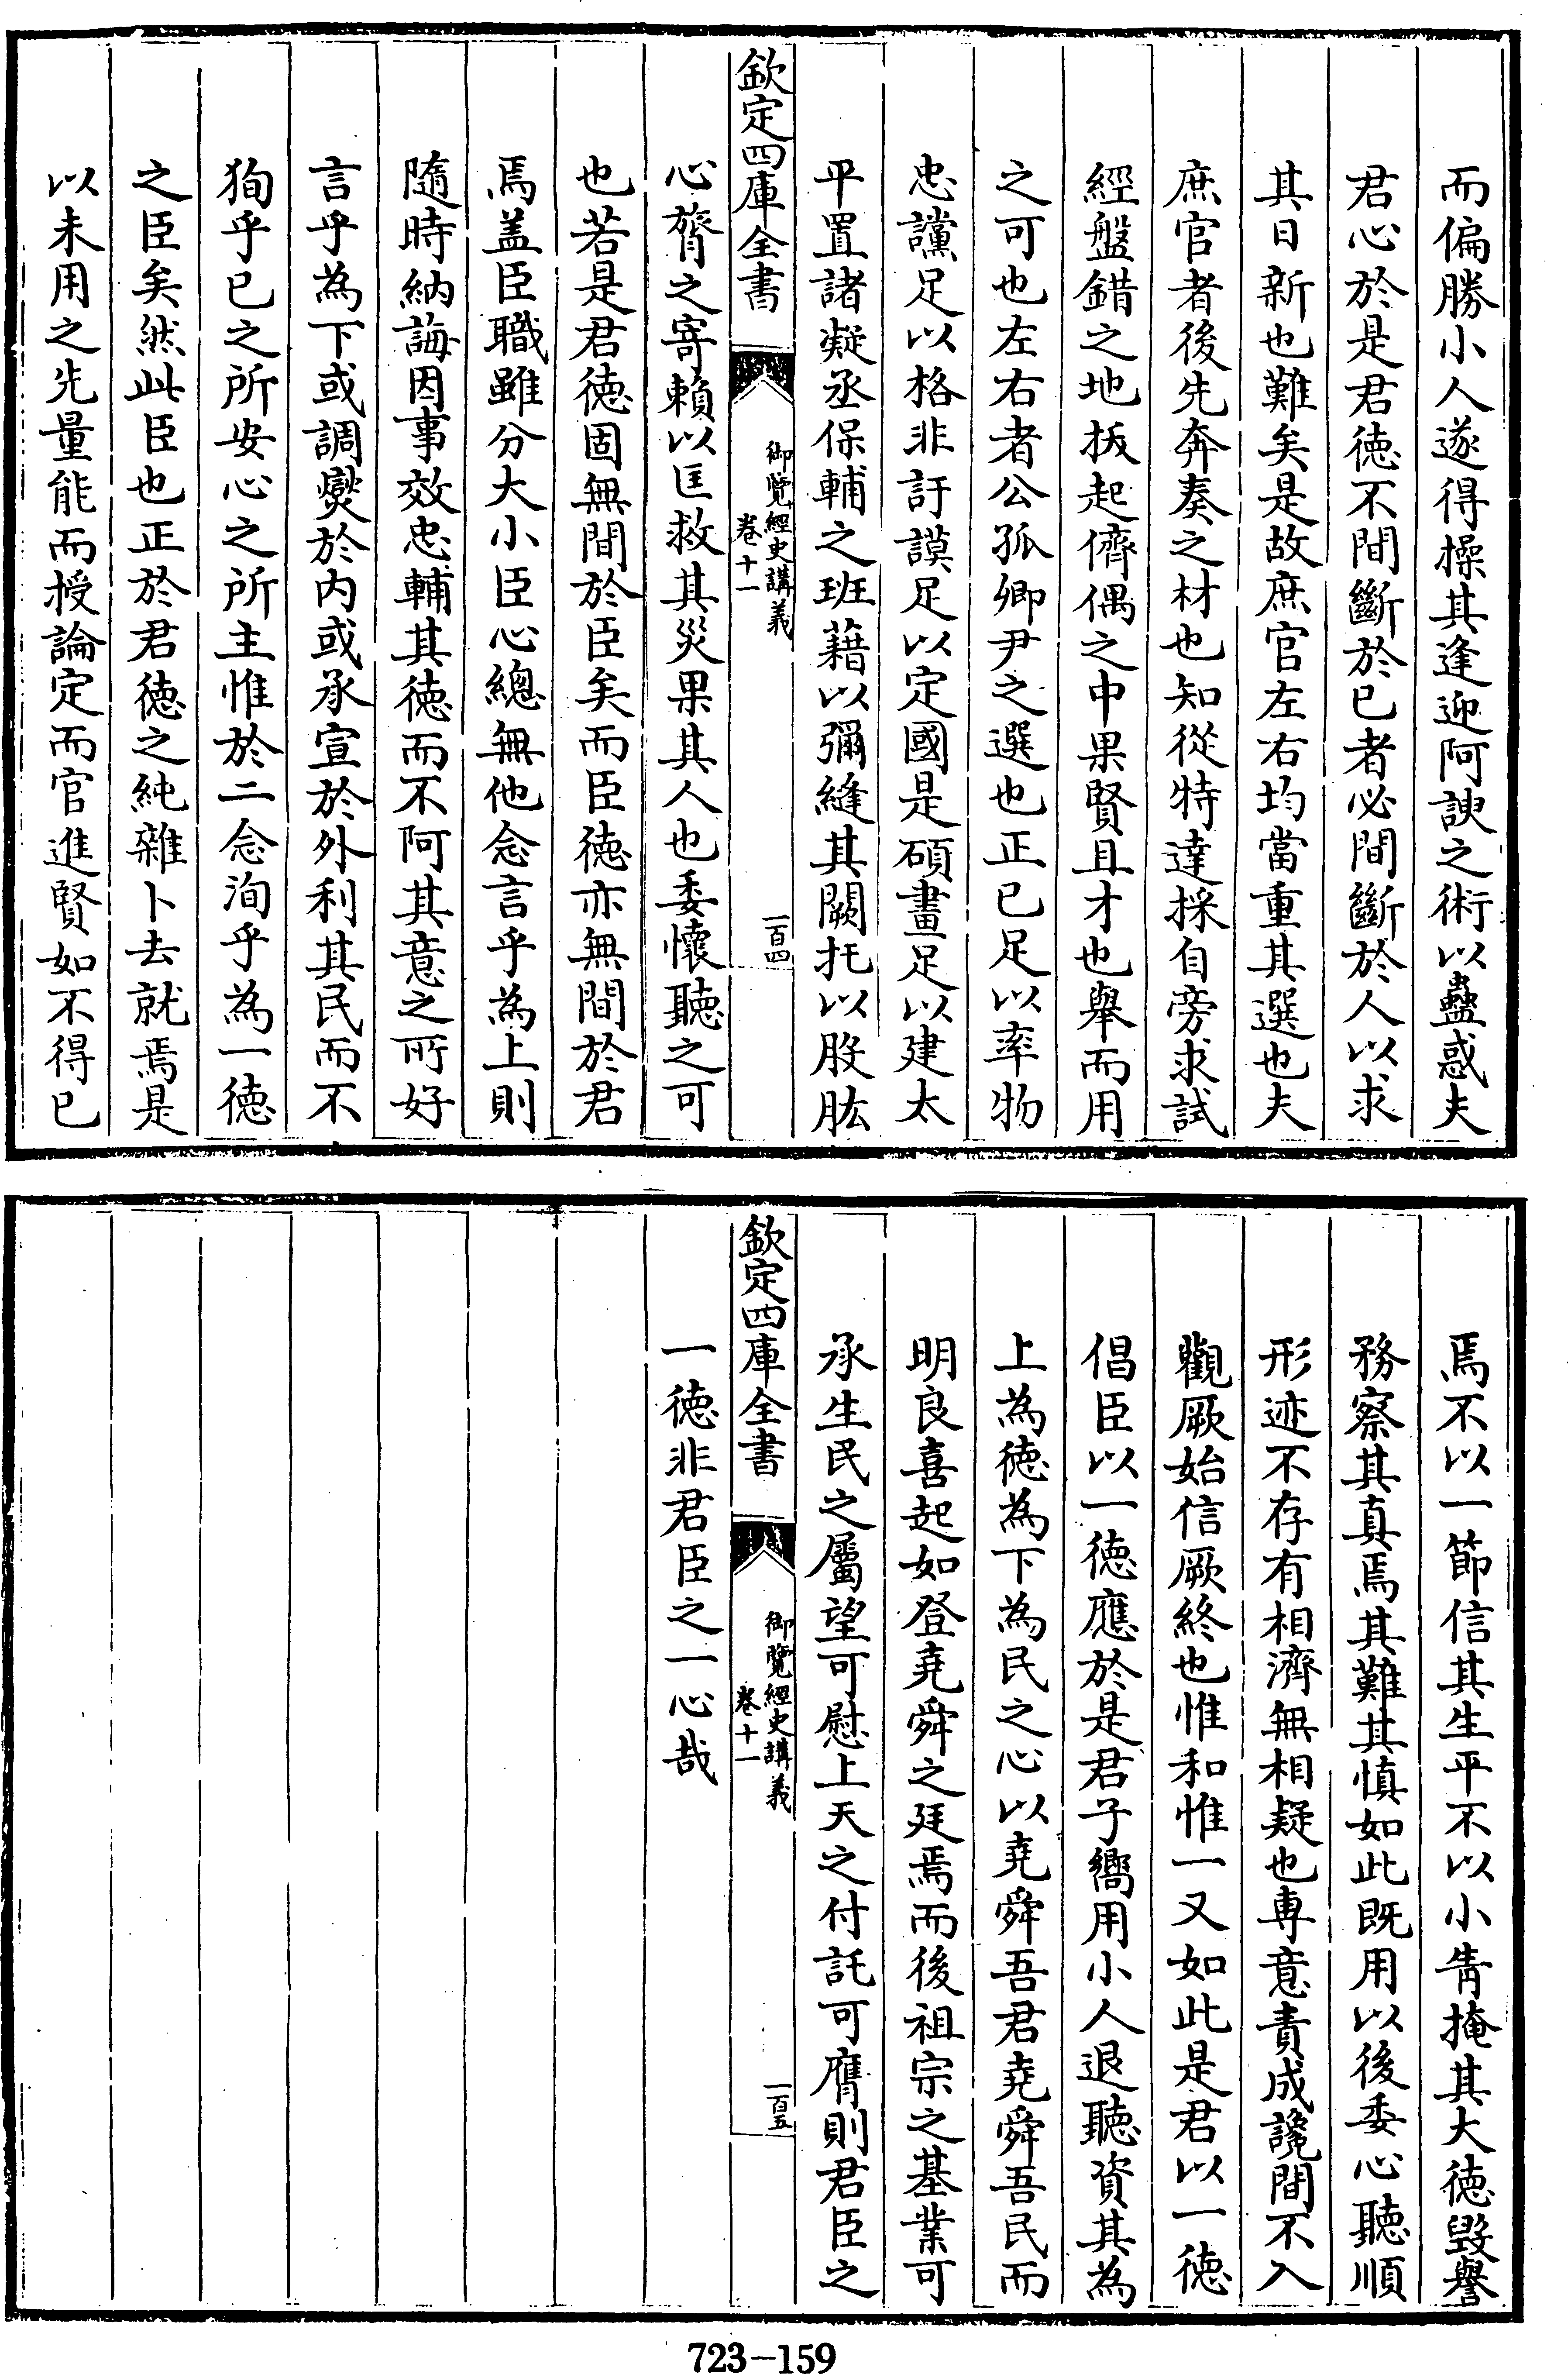 而偏勝小人遂得操其逢迎阿諛之術以蠱惑夫
君心於是君徳不間斷於已者必間斷於人以求
其日新也難矣是故庶官左右均當重其選也夫
庶官者後先奔奏之材也知從特達採自旁求試
經盤錯之地扳起儕偶之中果賢且才也舉而用
之可也左右者公孤卿尹之選也正已足以率物
忠讜足以格非訏謨足以定國是碩畫足以建太
平置諸凝丞保輔之班藉以彌縫其闕托以股肱
欽定四庫全書
御覽經史講義
卷十一
一百四
心膂之寄賴以匡救其災果其人也委懷聽之可
也若是君徳固無間於臣矣而臣徳亦無間於君
焉盖臣職雖分大小臣心總無他念言乎為上則
隨時納誨因事效忠輔其徳而不阿其意之所好
言乎為下或調爕於内或承宣於外利其民而不
狥乎已之所安心之所主惟於二念洵乎為一徳
之臣矣然此臣也正於君徳之純雜卜去就焉是
以未用之先量能而授論定而官進賢如不得已
焉不以一節信其生平不以小眚掩其大徳毀譽
務察其真焉其難其慎如此既用以後委心聽順
形迹不存有相濟無相疑也專意責成讒間不入
觀厥始信厥終也惟和惟一又如此是君以一徳
倡臣以一徳應於是君子嚮用小人退聽資其為
上為徳為下為民之心以堯舜吾君堯舜吾民而
明良喜起如登堯舜之廷焉而後祖宗之基業可
承生民之屬望可慰上天之付託可膺則君臣之
欽定四庫全書
御覽經史講義
卷十一
一百五
一徳非君臣之一心哉
723-159